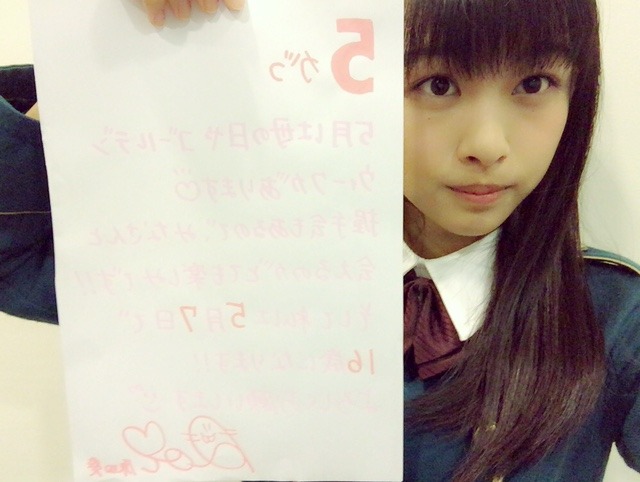 5
がつ
5月は母の日やゴールデン
ウィークがあります♡
握手会もあるので、みなさんと
会えるのがとても楽しみです!!
そして 5月7日で
16歳になります!!
よろしくお願いします
原田葵